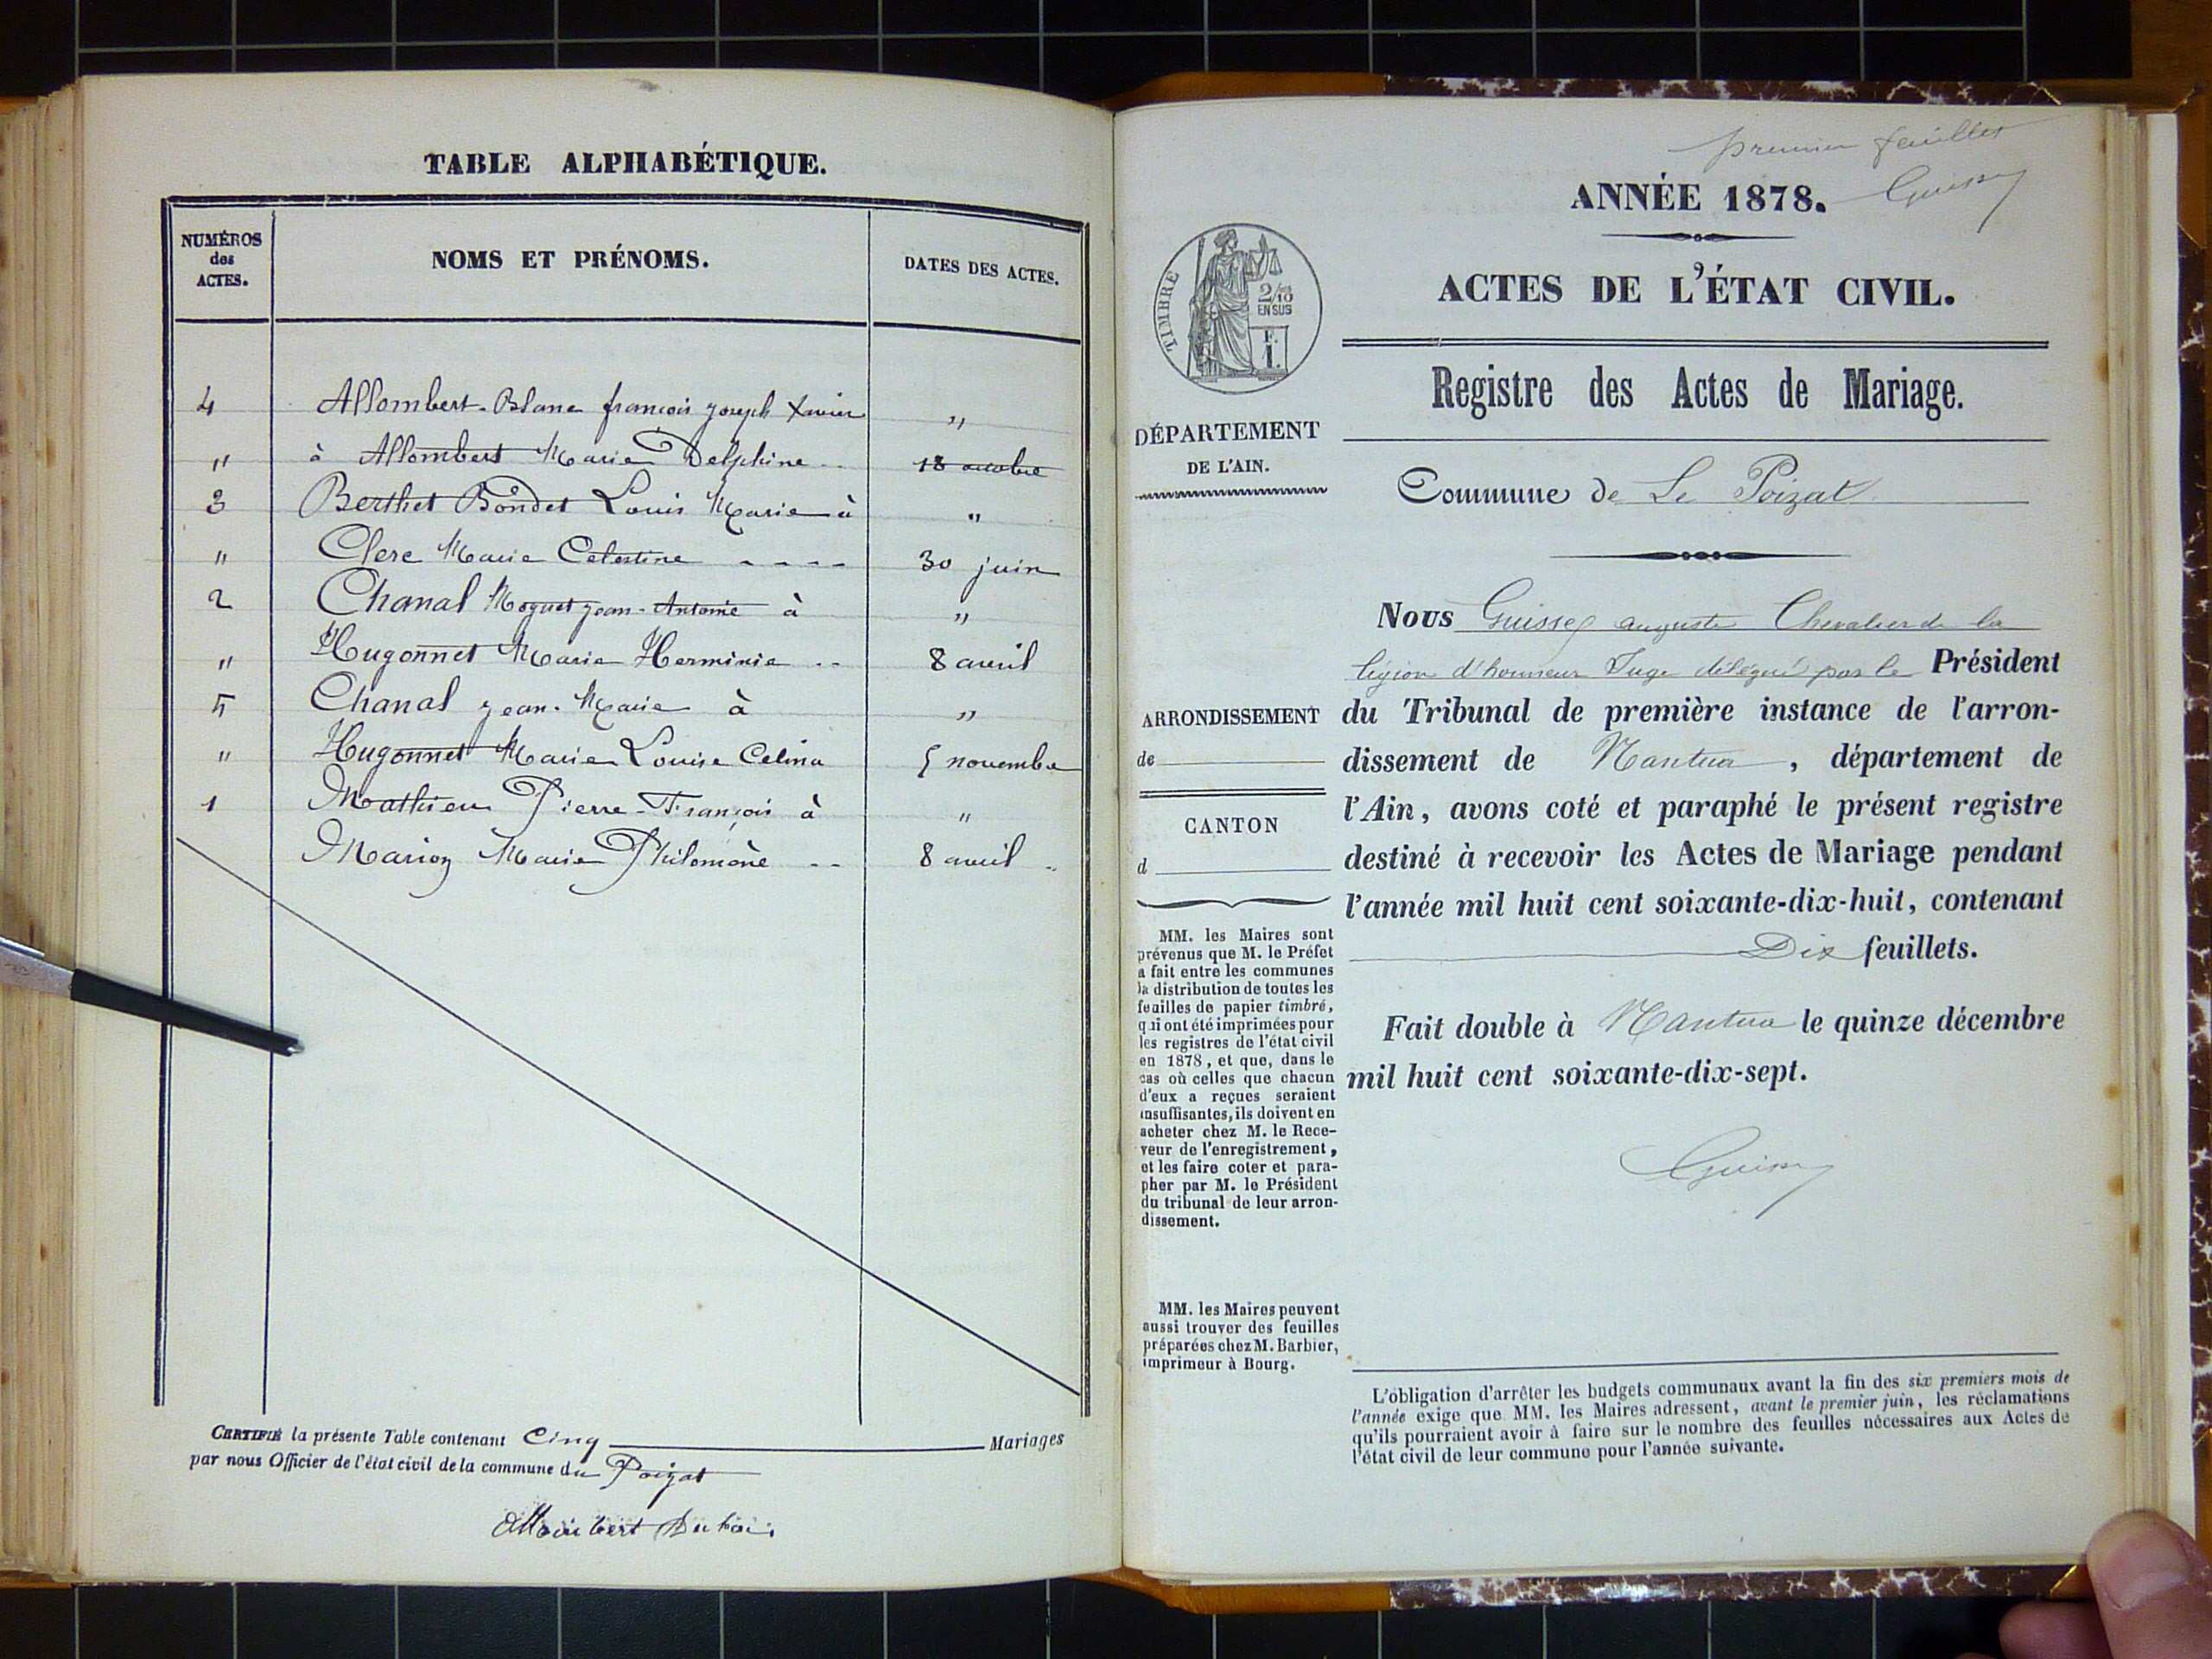 TABLE ALPHABÉTIQUE.
NUMÉROS
des
ACTES.
NOMS ET PRÉNOMS.
DATES DES ACTES.
4 Allombert-Blanc françois joseph Xavier "
" à Allombert Marie Delphine .. 18 octobre
3 Berthet Bondet Louis Marie à "
" Clerc Marie Celestine - - - - 30 juin
2 Chanal Moguet jean-Antoine à "
" Hugonnet Marie Herminie .. 8 avril
5 Chanal jean-Marie à "
" Hugonnet Marie Louise Celina 5 novembre
1 Mathieu Pierre-François à "
Marion Marie Philomène -- 8 avril
CERTIFIÉ la présente Table contenant Cinq Mariages
par nous Officier de l'état civil de la commune du Poizat
Allombert Dubois
premier feuillet
Guissey
ANNÉE 1878.
ACTES DE L'ÉTAT CIVIL.
TIMBRE
2/10
EN SUS
F.
1.
Registre des Actes de Mariage.
DÉPARTEMENT
DE L'AIN.
Commune de Le Poizat
Nous Guissey auguste Chevalier de la
légion d'honneur Juge délégué par le Président
du Tribunal de première instance de l'arron-
dissement de Nantua, département de
l'Ain, avons coté et paraphé le présent registre
destiné à recevoir les Actes de Mariage pendant
l'année mil huit cent soixante-dix-huit, contenant
Dix feuillets.
Fait double à Nantua le quinze décembre
mil huit cent soixante-dix-sept.
Guissey
ARRONDISSEMENT
de
CANTON
d
MM. les Maires sont
prévenus que M. le Préfet
a fait entre les communes
la distribution de toutes les
feuilles de papier timbré,
qui ont été imprimées pour
les registres de l'état civil
en 1878, et que, dans le
cas où celles que chacun
d'eux a reçues seraient
insuffisantes, ils doivent en
acheter chez M. le Rece-
veur de l'enregistrement,
et les faire coter et para-
pher par M. le Président
du tribunal de leur arron-
dissement.
MM. les Maires peuvent
aussi trouver des feuilles
préparées chez M. Barbier,
imprimeur à Bourg.
L'obligation d'arrêter les budgets communaux avant la fin des six premiers mois de
l'année exige que MM. les Maires adressent, avant le premier juin, les réclamations
qu'ils pourraient avoir à faire sur le nombre des feuilles nécessaires aux Actes de
l'état civil de leur commune pour l'année suivante.